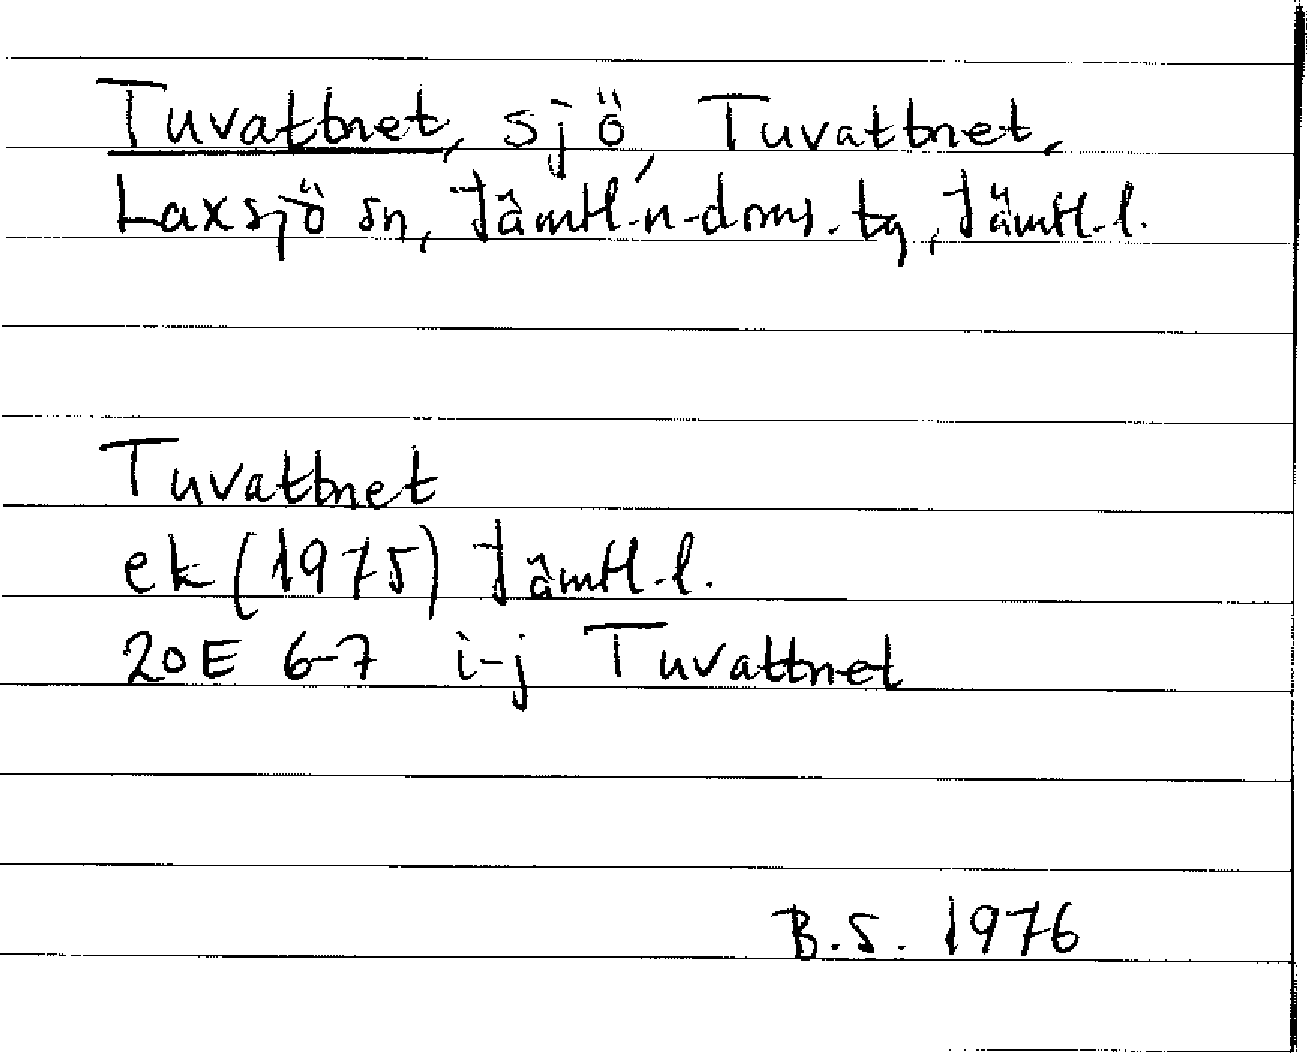 Tuvattnet, sjö, Tuvattnet,
Laxsjö sn, Jämtl. n. doms. tg, Jämtl. l.
Tuvattnet
ek (1975) Jämtl. l.
20E 6-7 i-j Tuvattnet
B.S. 1976